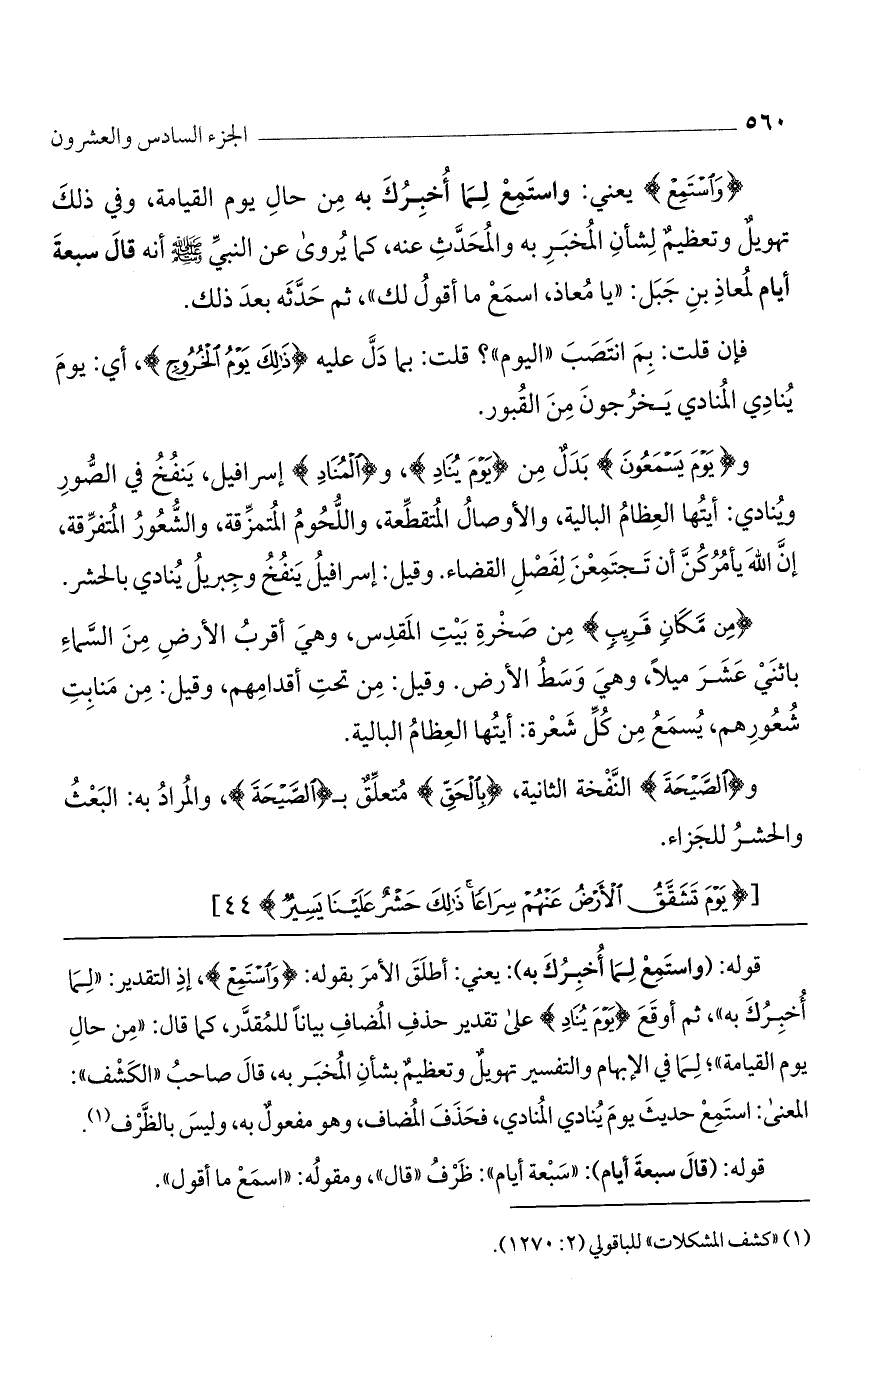 ٥٦٠ الجزء السادس والعشرون
﴿وَٱسْتَمِعْ﴾ يعني: واستَمِعْ لِمَا أُخبِرُكَ به مِن حالِ يوم القيامة، وفي ذلكَ
تهويلٌ وتعظيمٌ لِشأنِ المُخبَرِ به والمُحَدَّثِ عنه، كما يُروىٰ عن النبيِّ ﷺ أنه قالَ سبعةَ
أيام لمُعاذِ بنِ جَبَل: «يا مُعاذ، اسمَعْ ما أقولُ لك»، ثم حَدَّثَه بعدَ ذلك.
فإن قلت: بِمَ انتَصَبَ «اليوم»؟ قلت: بما دَلَّ عليه ﴿ذَٰلِكَ يَوْمُ ٱلْخُرُوجِ﴾، أي: يومَ
يُنادِي المُنادي يَخرُجونَ مِنَ القُبور.
و﴿يَوْمَ يَسْمَعُونَ﴾ بَدَلٌ مِن ﴿يَوْمَ يُنَادِ﴾، و﴿ٱلْمُنَادِ﴾ إسرافيل، يَنفُخُ في الصُّورِ
ويُنادي: أيتُها العِظامُ البالية، والأوصالُ المُتقطِّعة، واللُّحُومُ المُتمزِّقة، والشُّعُورُ المُتفرِّقة،
إنَّ اللهَ يأمُرُكُنَّ أن تَجتَمِعْنَ لِفَصْلِ القضاء. وقيل: إسرافيلُ يَنفُخُ وجِبريلُ يُنادي بالحشر.
﴿مِن مَّكَانٍ قَرِيبٍ﴾ مِن صَخْرةِ بَيْتِ المَقدِس، وهيَ أقربُ الأرضِ مِنَ السَّماءِ
باثنَيْ عَشَرَ ميلاً، وهيَ وَسَطُ الأرض. وقيل: مِن تحتِ أقدامِهم، وقيل: مِن مَنابِتِ
شُعُورِهم، يُسمَعُ مِن كُلِّ شَعْرة: أيتُها العِظامُ البالية.
و﴿ٱلصَّيْحَةَ﴾ النَّفْخة الثانية، ﴿بِٱلْحَقِّ﴾ مُتعلِّقٌ بـ﴿ٱلصَّيْحَةَ﴾، والمُرادُ به: البَعْثُ
والحشرُ للجَزاء.
[﴿يَوْمَ تَشَقَّقُ ٱلْأَرْضُ عَنْهُمْ سِرَاعًا ۚ ذَٰلِكَ حَشْرٌ عَلَيْنَا يَسِيرٌ﴾ ٤٤]
قوله: (واستَمِعْ لِمَا أُخبِرُكَ به): يعني: أطلَقَ الأمرَ بقوله: ﴿وَٱسْتَمِعْ﴾، إذِ التقدير: «لِمَا
أُخبِرُكَ به»، ثم أوقَعَ ﴿يَوْمَ يُنَادِ﴾ علىٰ تقدير حذفِ المُضافِ بياناً للمُقدَّر، كما قال: «مِن حالِ
يوم القيامة»؛ لِمَا في الإبهام والتفسير تهويلٌ وتعظيمٌ بشأنِ المُخبَرِ به، قالَ صاحبُ «الكَشْف»:
المعنىٰ: استَمِعْ حديثَ يومَ يُنادي المُنادي، فحَذَفَ المُضاف، وهو مفعولٌ به، وليسَ بالظَّرْف(١).
قوله: (قالَ سبعةَ أيام): «سَبْعة أيام»: ظَرْفُ «قال»، ومقولُه: «اسمَعْ ما أقول».
(١) «كشف المشكلات» للباقولي (٢: ١٢٧٠).